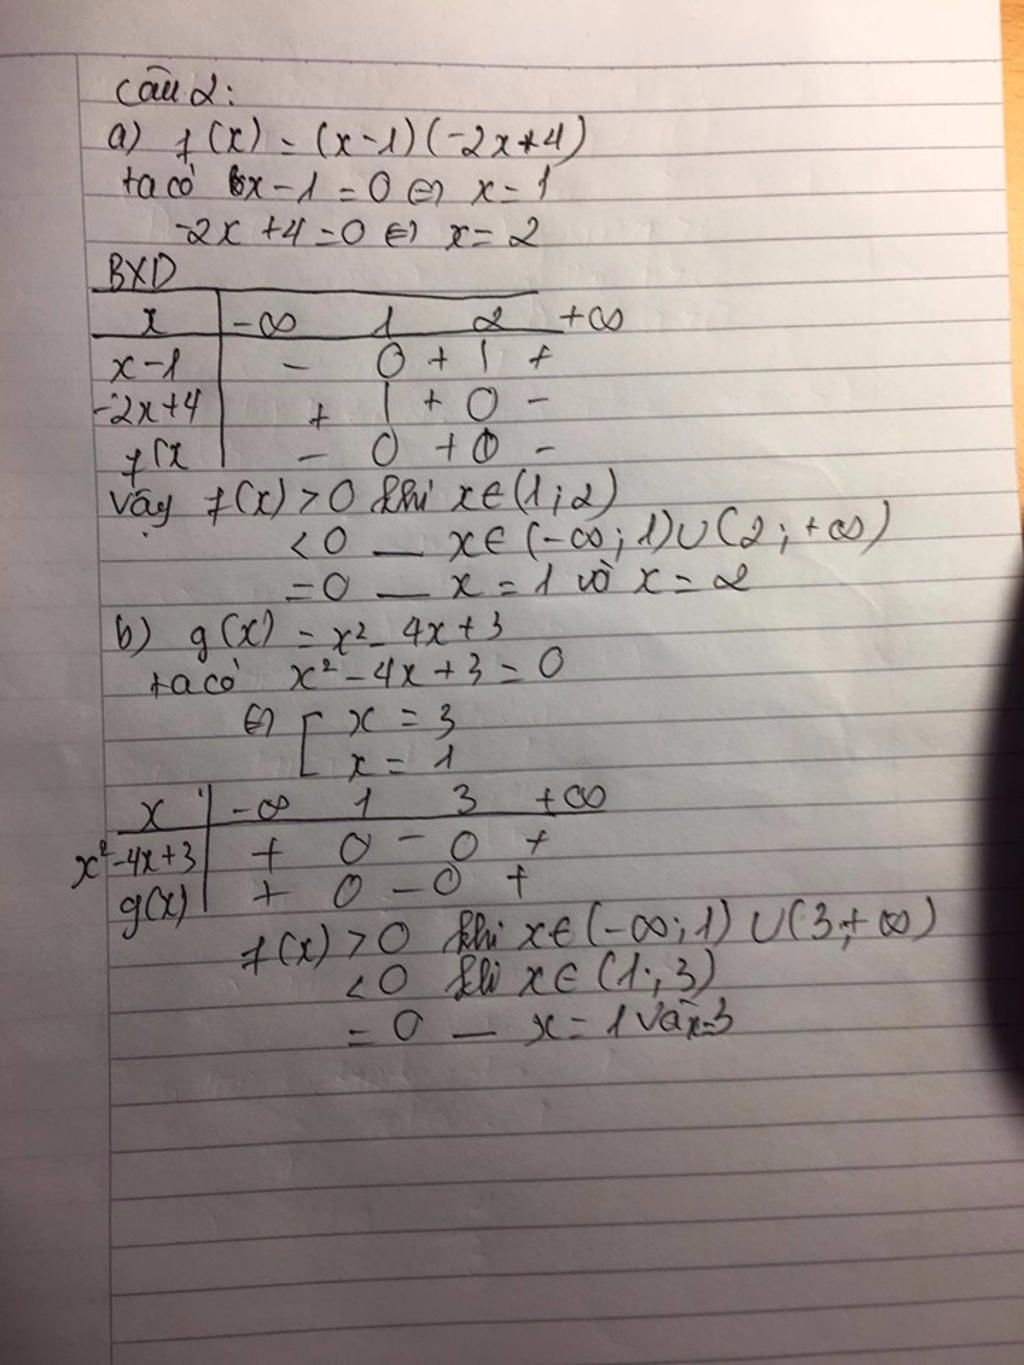 Câu 2:
a) f(x) = (x-1)(-2x+4)
ta có x-1=0 ⇔ x=1
-2x+4=0 ⇔ x=2
BXD
x | -∞ 1 2 +∞
x-1 | - 0 + | +
-2x+4 | + | + 0 -
f(x | - 0 + 0 -
Vậy f(x) > 0 khi x∈(1;2)
<0 — x∈(-∞;1)∪(2;+∞)
=0 — x=1 và x=2
b) g(x) = x²-4x+3
ta có x²-4x+3=0
⇔ [ x=3
x=1
x | -∞ 1 3 +∞
x²-4x+3 | + 0 - 0 +
g(x) | + 0 - 0 +
f(x) > 0 khi x∈(-∞;1) ∪(3;+∞)
<0 khi x∈(1;3)
=0 — x=1 và x=3